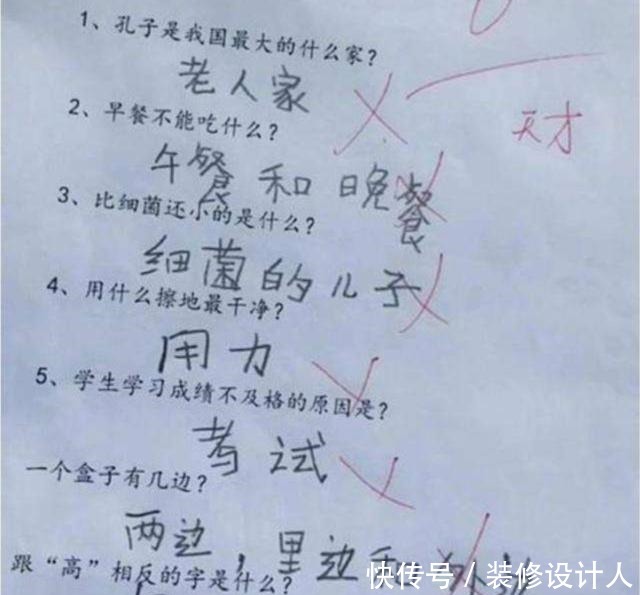 1、孔子是我国最大的什么家?
老人家
天才
2、早餐不能吃什么?
午餐和晚餐
3、比细菌还小的是什么?
细菌的儿子
4、用什么擦地最干净?
用力
5、学生学习成绩不及格的原因是?
考试
一个盒子有几边?
两边，里边和外边
跟“高”相反的字是什么?
快传号／装修设计人